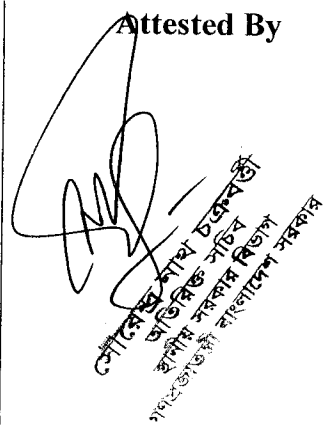 Attested By
সৌরেন্দ্র নাথ চক্রবর্ত্তী
অতিরিক্ত সচিব
স্থানীয় সরকার বিভাগ
গণপ্রজাতন্ত্রী বাংলাদেশ সরকার